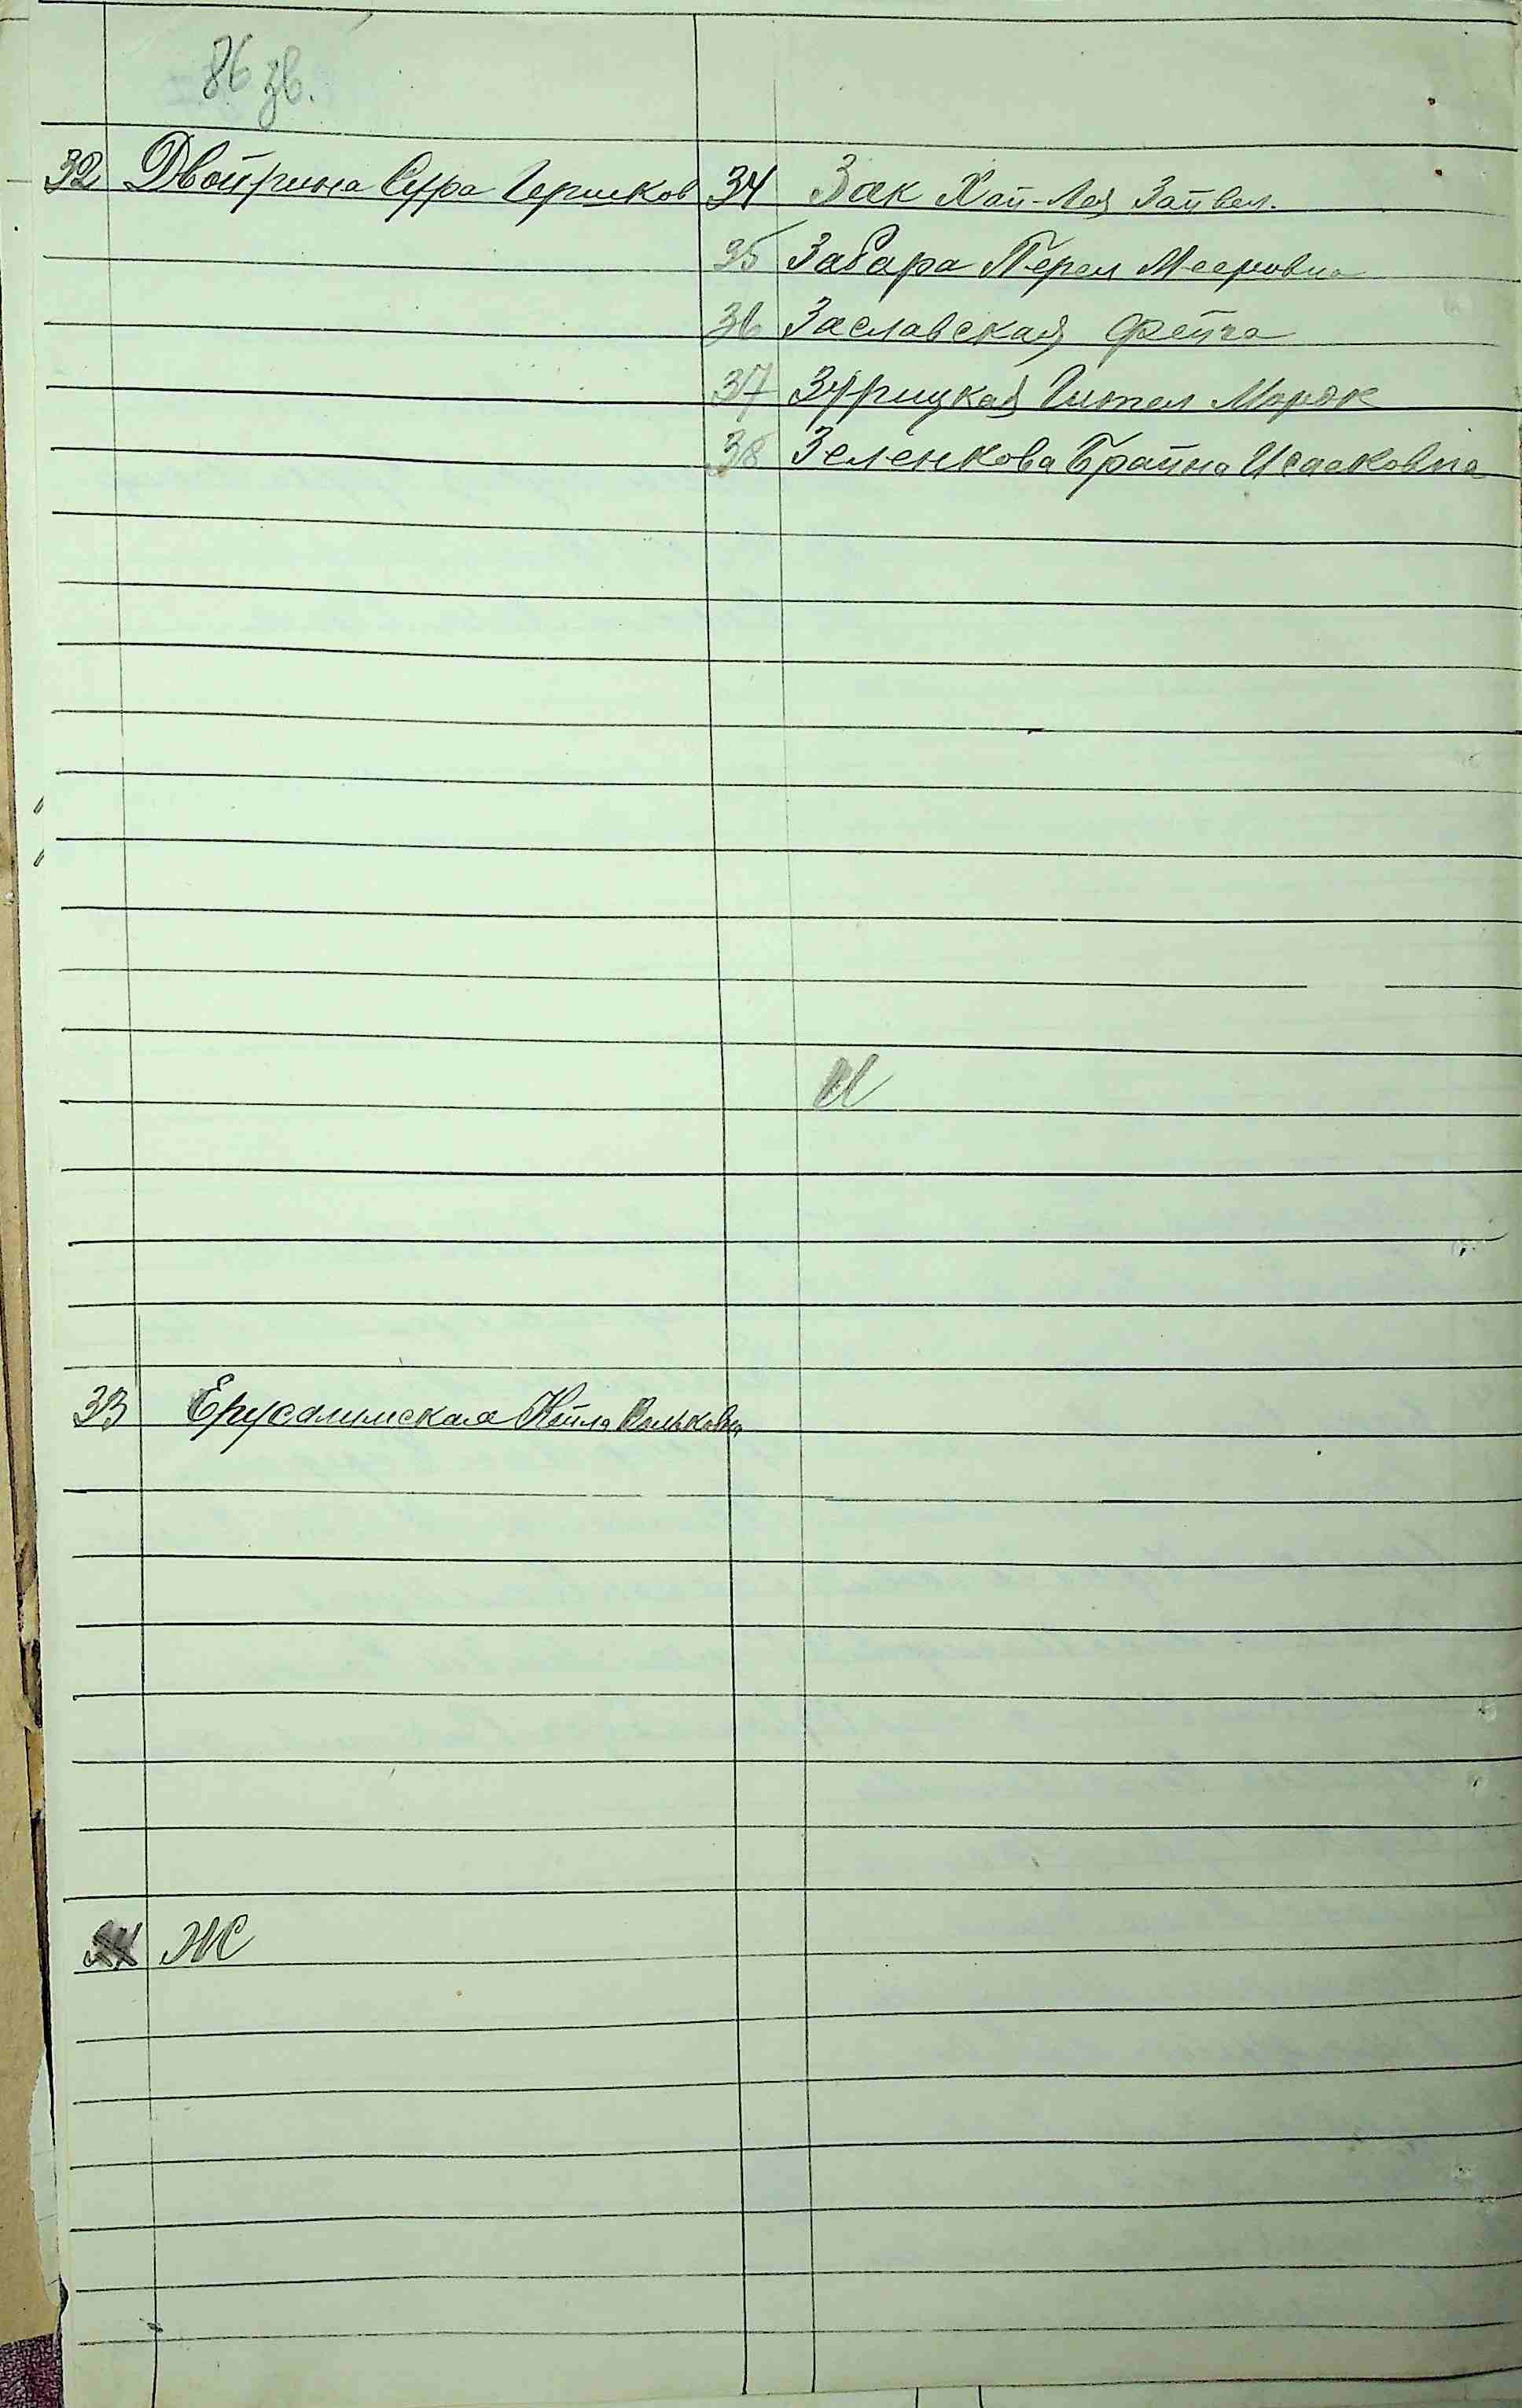 86 зв.
32 Двойрина Сура Гершков
33 Ерусалимская Кейла Вольковна
Ж
34 Зак Хай-Лея Зайвел.
35 Забара Перел Мееровна
36 Заславская Фейга
37 Зурицкая Гител Мордк
38 Зеленкова Брайна Исааковна
И